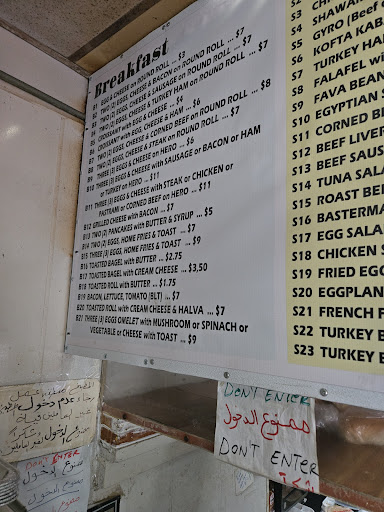 Breakfast
B1 EGG & CHEESE on ROUND ROLL ... $3
B2 TWO (2) EGGS, CHEESE & BACON on ROUND ROLL ... $7
B3 TWO (2) EGGS, CHEESE & SAUSAGE on ROUND ROLL ... $7
B4 TWO (2) EGGS, CHEESE & TURKEY HAM on ROUND ROLL ... $7
B5 CROISSANT with EGG & CHEESE ... $4
B6 CROISSANT with EGG, CHEESE & HAM ... $6
B7 TWO (2) EGGS, CHEESE & CORNED BEEF on ROUND ROLL ... $8
B8 TWO (2) EGGS, CHEESE & STEAK on ROUND ROLL ... $7
B9 THREE (3) EGGS & CHEESE on HERO ... $6
B10 THREE (3) EGGS & CHEESE with SAUSAGE or BACON or HAM
or TURKEY on HERO ... $11
B11 THREE (3) EGGS & CHEESE with STEAK or CHICKEN or
PASTRAMI or CORNED BEEF on HERO ... $11
B12 GRILLED CHEESE with BACON ... $7
B13 TWO (2) PANCAKES with BUTTER & SYRUP ... $5
B14 TWO (2) EGGS, HOME FRIES & TOAST ... $7
B15 THREE (3) EGGS, HOME FRIES & TOAST ... $9
B16 TOASTED BAGEL with BUTTER ... $2.75
B17 TOASTED BAGEL with CREAM CHEESE ... $3,50
B18 TOASTED ROLL with BUTTER ... $1.75
B19 BACON, LETTUCE, TOMATO (BLT) ... $7
B20 TOASTED ROLL with CREAM CHEESE & HALVA ... $7
B21 THREE (3) EGGS OMELET with MUSHROOM or SPINACH or
VEGETABLE or CHEESE with TOAST ... $9
S3 CHICK
S4 SHAWAR
S5 GYRO (Beef o
S6 KOFTA KAB
S7 TURKEY HA
S8 FALAFEL wi
S9 FAVA BEAN
S10 EGYPTIAN S
S11 CORNED B
S12 BEEF LIVE
S13 BEEF SAUS
S14 TUNA SALA
S15 ROAST BE
S16 BASTERMA
S17 EGG SALA
S18 CHICKEN S
S19 FRIED EGG
S20 EGGPLAN
S21 FRENCH F
S22 TURKEY B
S23 TURKEY B
DON'T ENTER
ممنوع الدخول
DON'T ENTER
DON'T ENTER
ممنوع الدخول